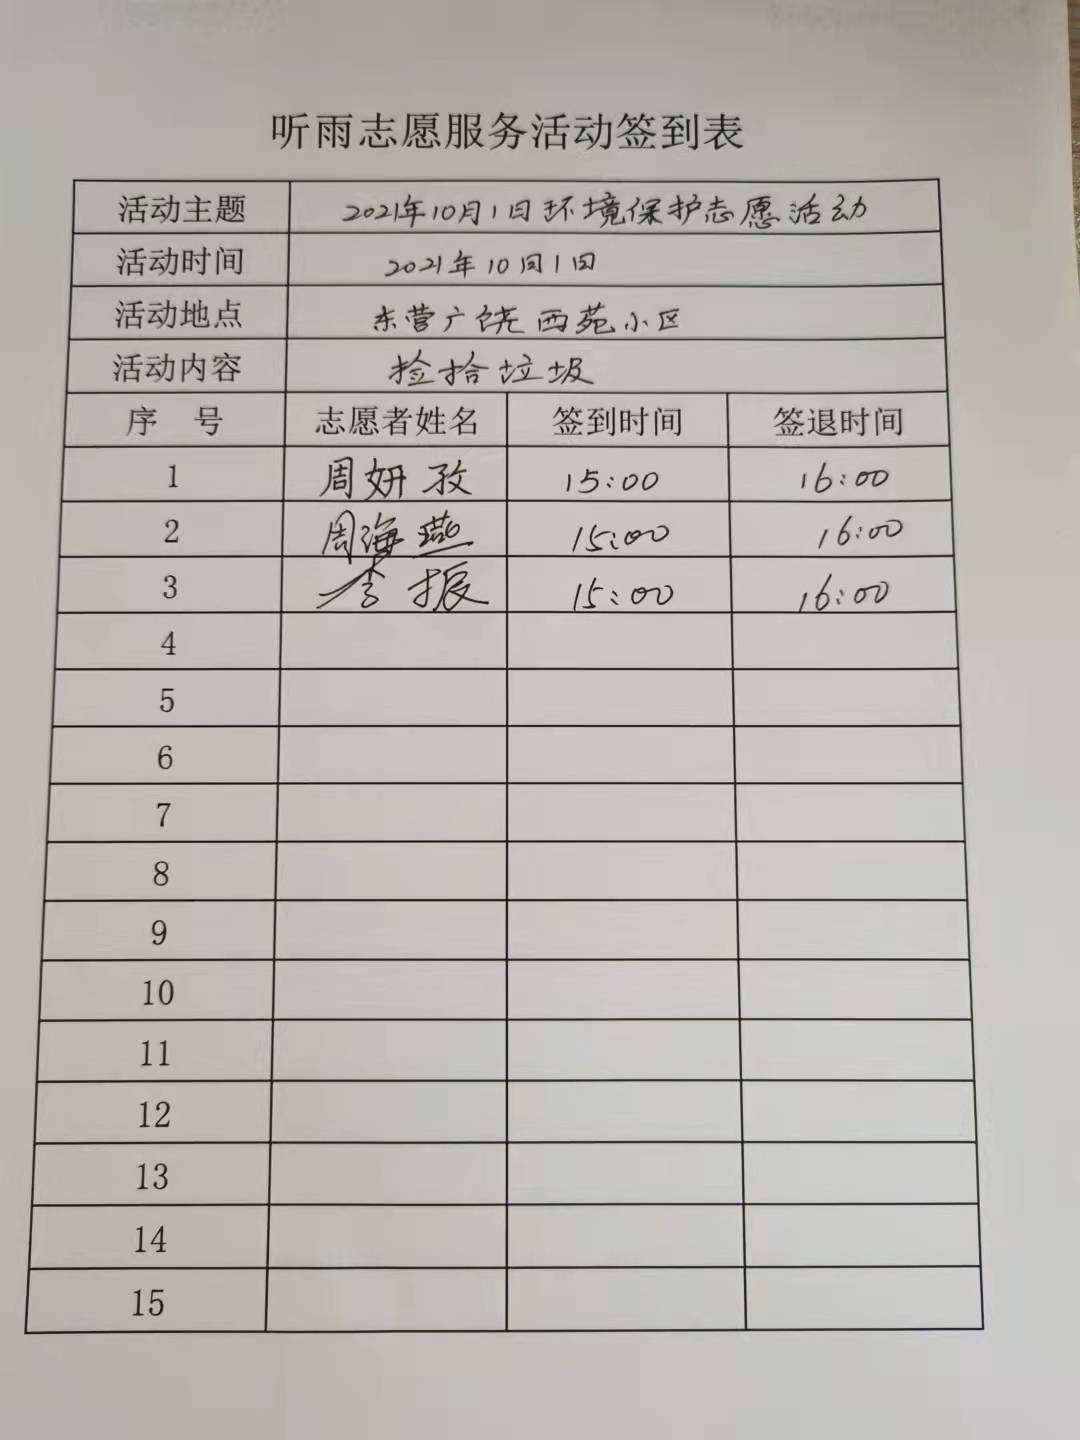 听雨志愿服务活动签到表
活动主题 2021年10月1日环境保护志愿活动
活动时间 2021年10月1日
活动地点 东营广饶西苑小区
活动内容 捡拾垃圾
序 号 志愿者姓名 签到时间 签退时间
1 周妍孜 15:00 16:00
2 周海燕 15:00 16:00
3 李振 15:00 16:00
4
5
6
7
8
9
10
11
12
13
14
15